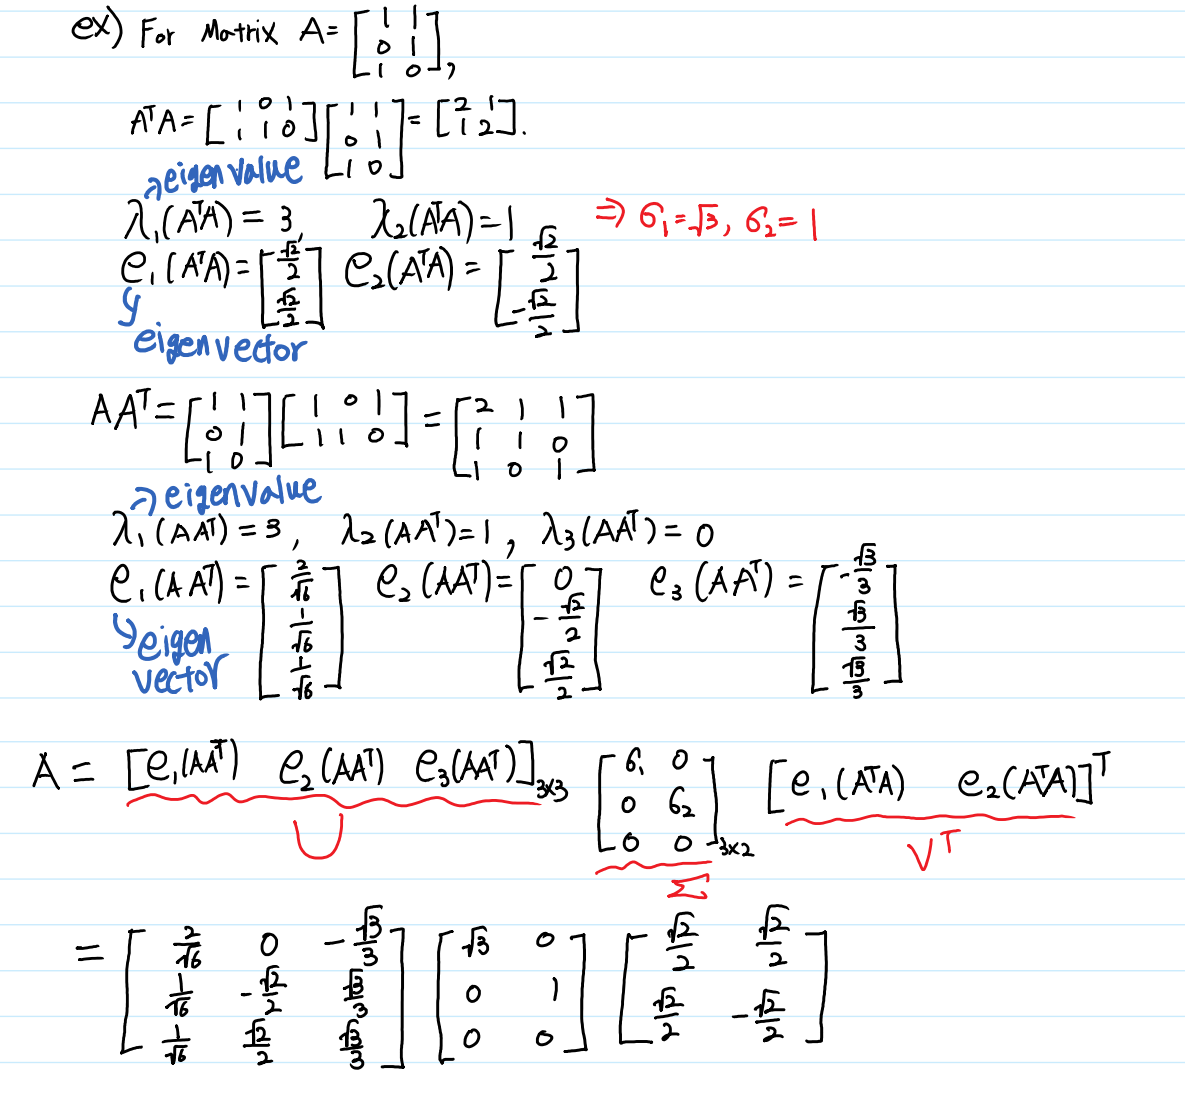 ex) For Matrix A = [1 1; 0 1; 1 0],
AᵀA = [1 0 1; 1 1 0][1 1; 0 1; 1 0] = [2 1; 1 2].
eigenvalue
λ₁(AᵀA) = 3, λ₂(AᵀA) = 1 ⇒ σ₁ = √3, σ₂ = 1
e₁(AᵀA) = [√2/2; √2/2] e₂(AᵀA) = [√2/2; -√2/2]
eigenvector
AAᵀ = [1 1; 0 1; 1 0][1 0 1; 1 1 0] = [2 1 1; 1 1 0; 1 0 1]
eigenvalue
λ₁(AAᵀ) = 3, λ₂(AAᵀ) = 1, λ₃(AAᵀ) = 0
e₁(AAᵀ) = [2/√6; 1/√6; 1/√6] e₂(AAᵀ) = [0; -√2/2; √2/2] e₃(AAᵀ) = [-√3/3; √3/3; √3/3]
eigen
vector
A = [e₁(AAᵀ) e₂(AAᵀ) e₃(AAᵀ)]₃ₓ₃ [σ₁ 0; 0 σ₂; 0 0]₃ₓ₂ [e₁(AᵀA) e₂(AᵀA)]ᵀ
U Σ Vᵀ
= [2/√6 0 -√3/3; 1/√6 -√2/2 √3/3; 1/√6 √2/2 √3/3] [√3 0; 0 1; 0 0] [√2/2 √2/2; √2/2 -√2/2]